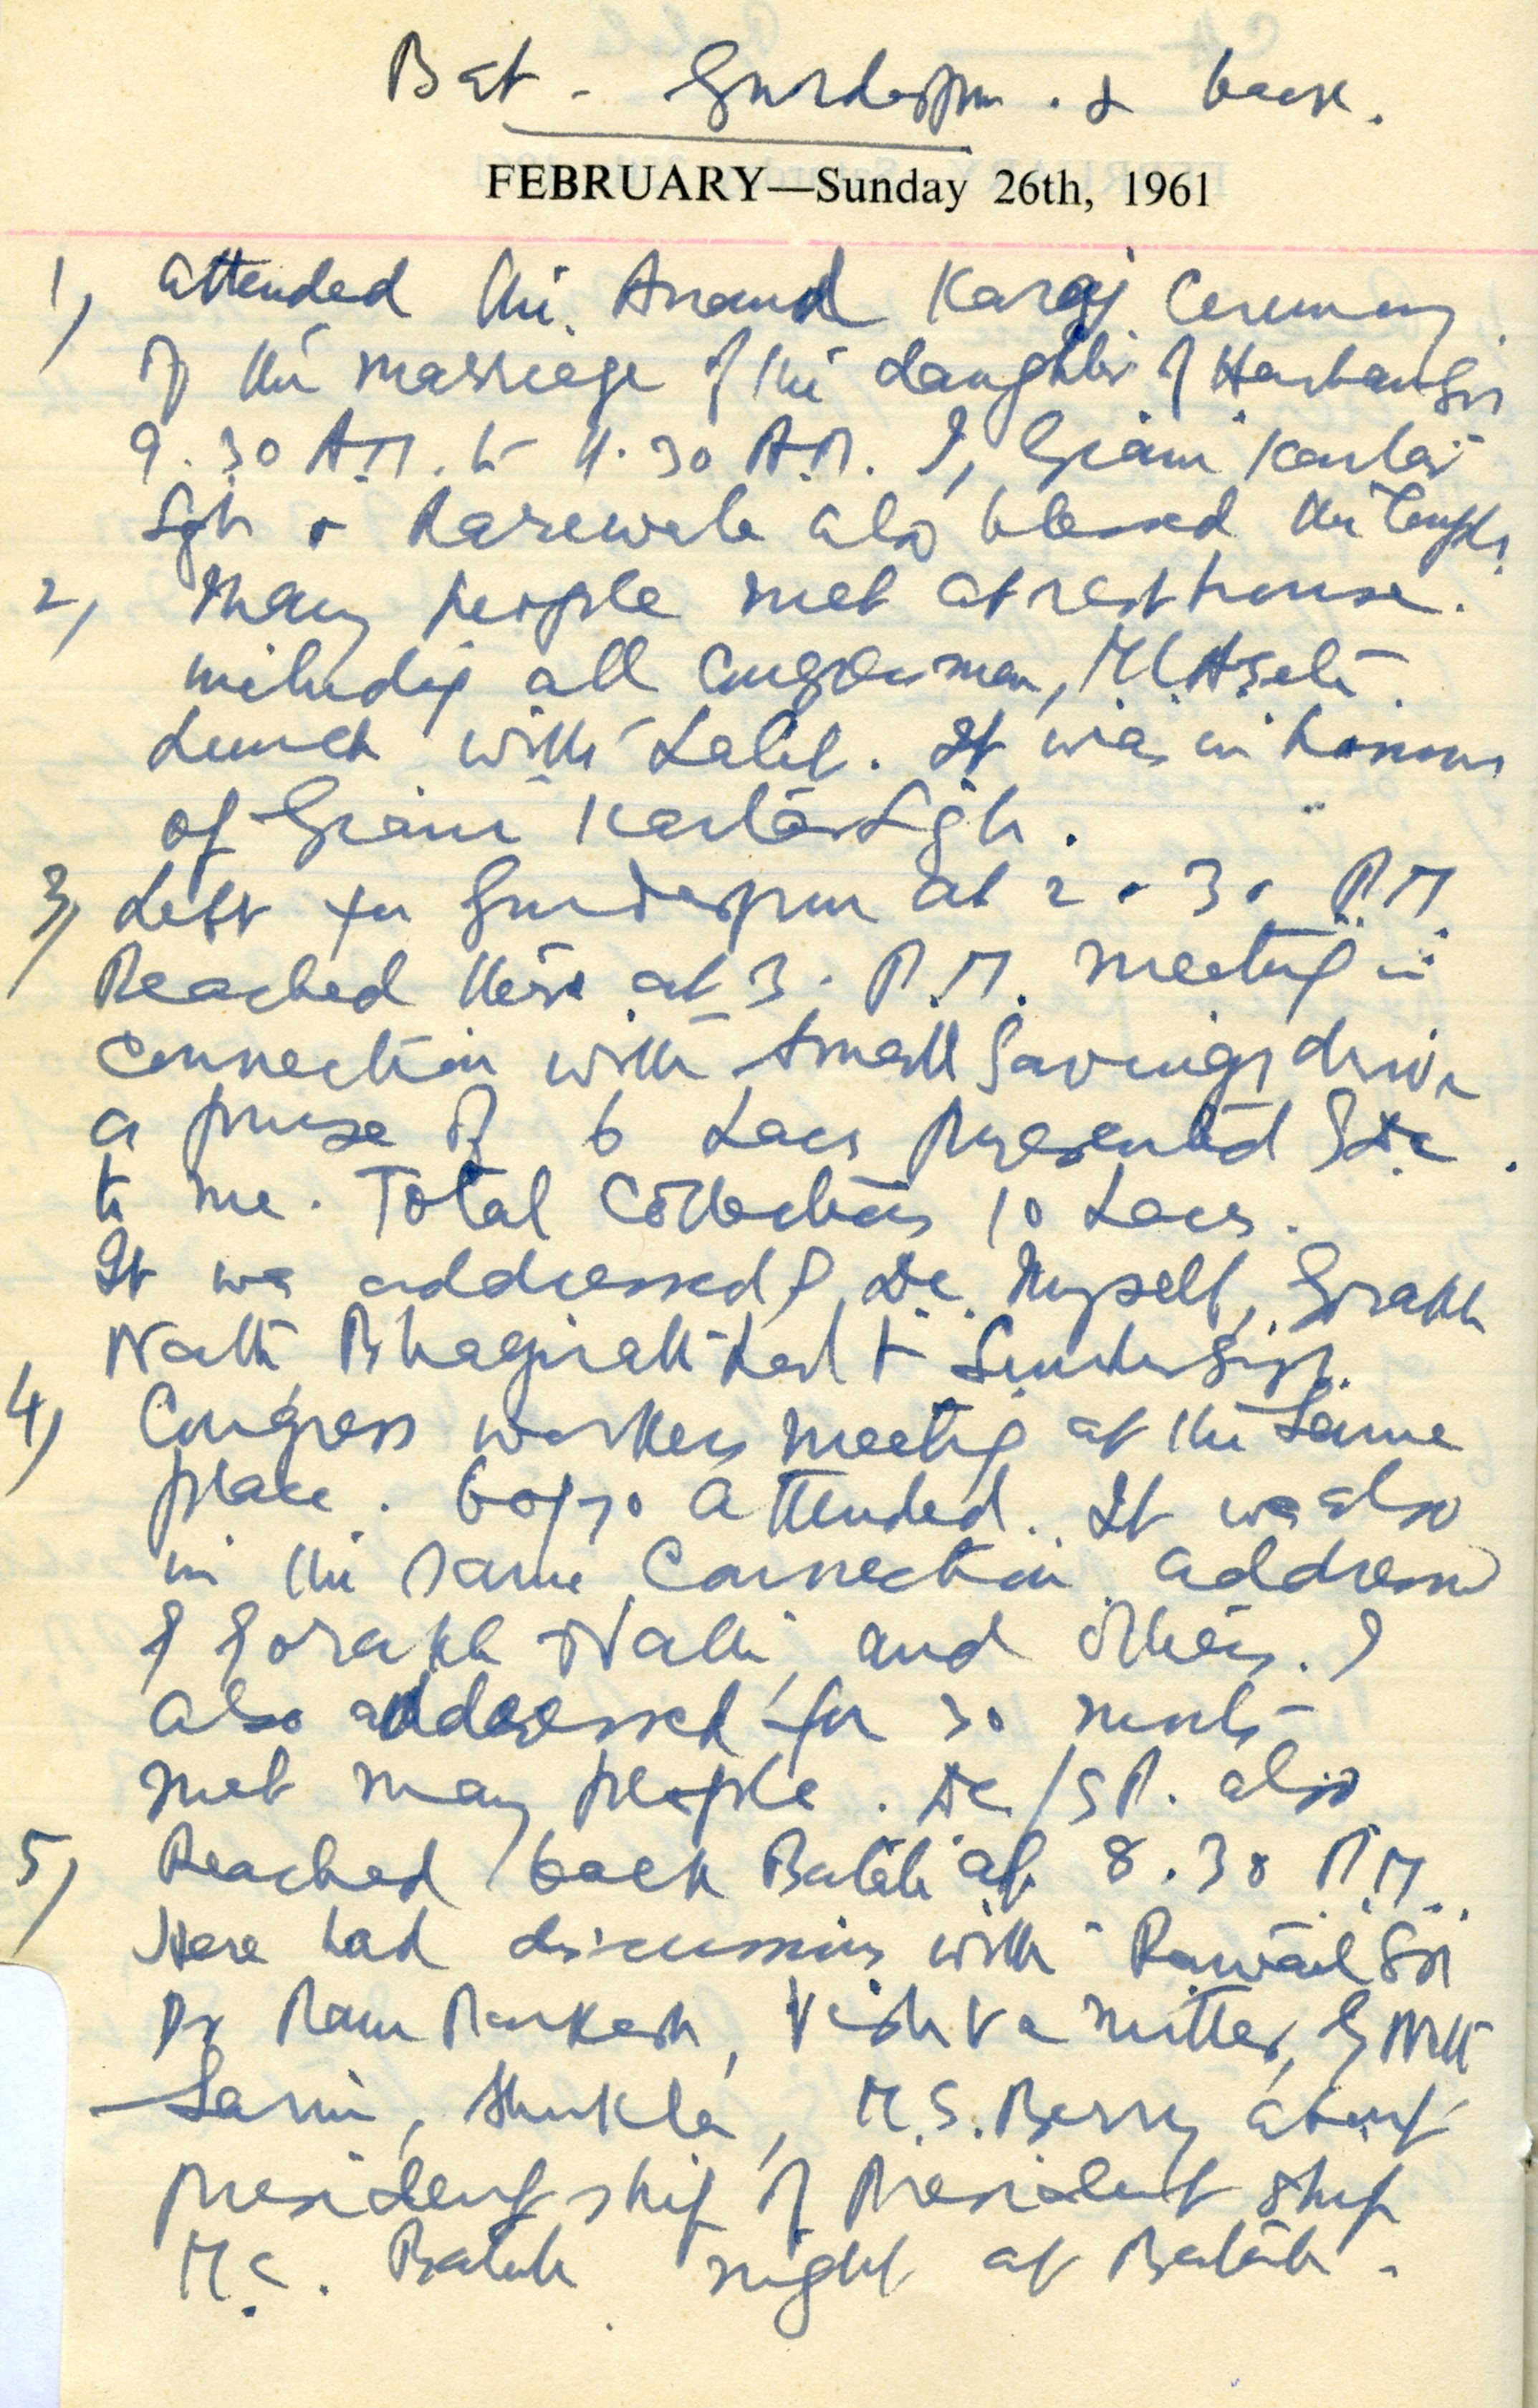 Bat - Gurdaspur . & back.
FEBRUARY—Sunday 26th, 1961
1) attended the Anand Karaj Ceremony
of the marriage of the daughter of Harbans
9.30 A.M. to 11.30 A.M. I, Giani Kartar
Sgh & Rarewala also blessed the Couple
2) Many people met at rest house.
including all Congressmen, MLAs etc.
Lunch with Lalit. It was in honour
of Giani Kartar Sgh.
3) Left for Gurdaspur at 2.30 P.M.
Reached there at 3. P.M. meeting in
connection with Small Savings drive
a purse of 6 Lacs presented
to me. Total Collections 10 Lacs.
It was addressed by Dc. Myself, Gorakh
Nath, Bhagirath Lal & Sunder Singh.
4) Congress workers meeting at the Same
place. 60/70 attended. It was also
in the same Connection addressed
by Gorakh Nath and others. I
also addressed for 30 minuts
met many people. Dc/SP. also
5) Reached back Batala at 8.30 P.M.
Here had discussions with Rawail
Dr Ram Parkash, Vishva Mitter,
Sarin, Shukla, M.S. Berry about
presidentship of President ship
M.C. Batala night at Batala.